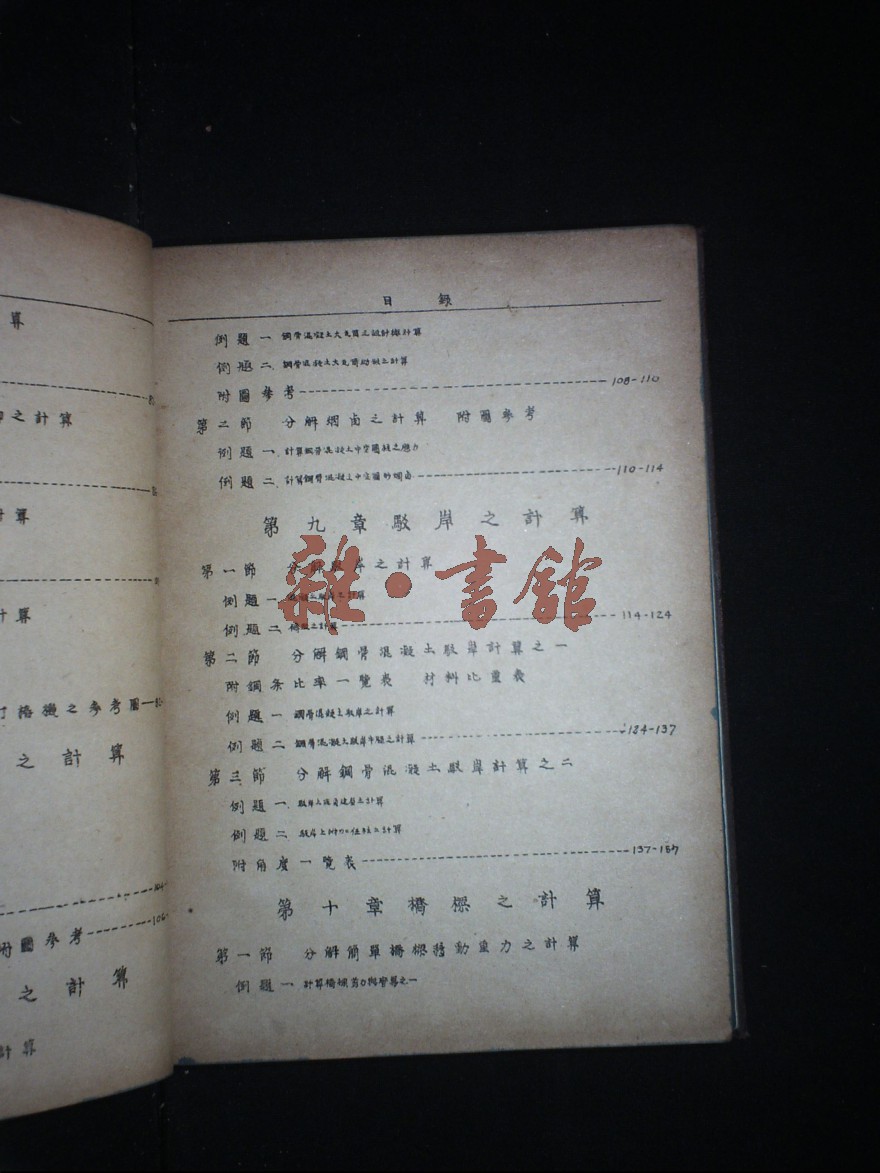 算
之計算
計算
計算
打樁機之參考圖
之計算
106-
附圖參考
之計算
計算
目錄
例題一
例題二
附圖參考 108-110
第二節 分解烟卤之計算 附圖參考
例題一 計算鋼骨混凝土中空圓柱之應力
例題二 計算鋼骨混凝土中空圓的烟卤 110-114
第九章駁岸之計算
第一節 分解駁岸之計算
例題一
例題二 之計算 114-124
第二節 分解鋼骨混凝土駁岸計算之一
附鋼条比率一覽表 材料比重表
例題一 鋼骨混凝土駁岸之計算
例題二 鋼骨混凝土駁岸牛腿之計算 124-137
第三節 分解鋼骨混凝土駁岸計算之二
例題一
例題二
附角度一覽表 137-157
第十章橋樑之計算
第一節 分解簡單橋樑移動重力之計算
例題一 計算橋樑剪力與彎冪之一
雜·書館